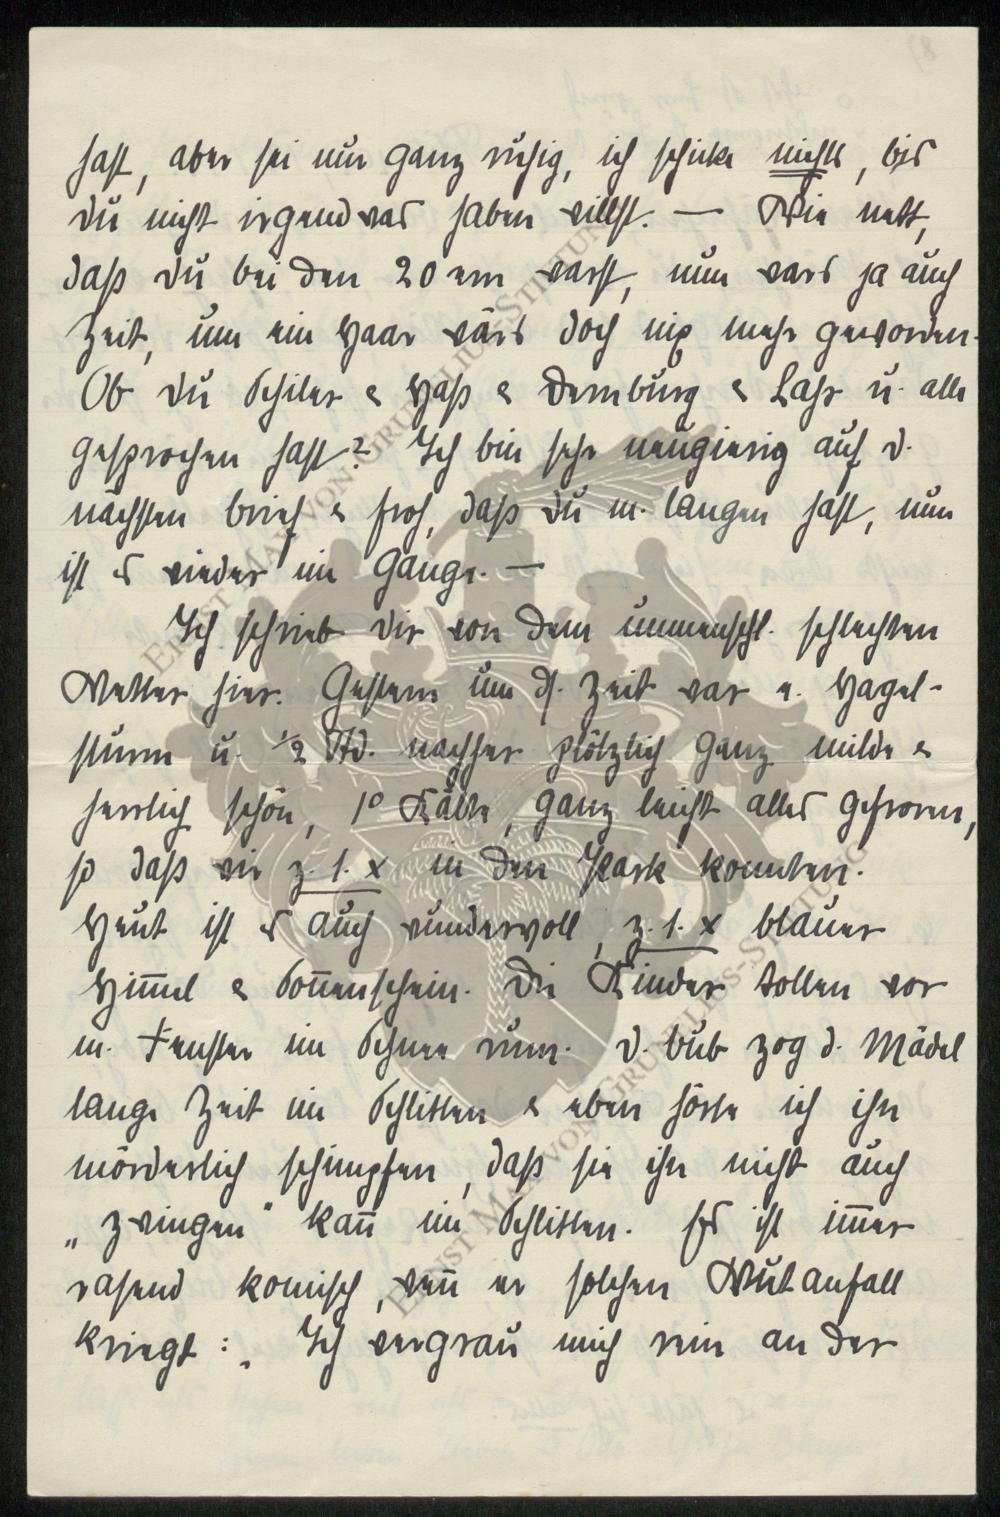 hast, aber sei nur ganz ruhig, ich schicke nichts, bis
du nicht irgend was haben willst. — Wie nett,
daß du bei den 20 ern warst, nun wars ja auch
Zeit, um ein Haar wärs doch nix mehr geworden.
Ob du Schiler & Haß & Dernburg & Lahr u. alle
gesprochen hast? Ich bin sehr neugierig auf d.
nächsten brief & froh, daß du m. langen hast, nun
ist es wieder im Gange. —
Ich schrieb dir von dem unmenschl. schlechten
Wetter hier. Gestern um ds. Zeit war e. Hagel-
sturm u. 1/2 Std. nachher plötzlich ganz milde &
herrlich schön, 1° Kälte, ganz leicht alles gefroren,
so daß wir z. 1. x in den Park konnten.
Heut ist es auch wundervoll, z. 1. x blauer
Him̅el & Son̅enschein. Die Kinder tollen vor
m. Fenster im Schnee rum. D. bub zog d. Mädel
lange Zeit im Schlitten & eben hörte ich ihn
mörderlich schimpfen, daß sie ihn nicht auch
„zwingen" kan̅ im Schlitten. Es ist im̅er
rasend komisch, wen̅ er solchen Wutanfall
kriegt: „Ich vergrau mich rein an der
ERNST MAX VON GRUNELIUS-STIFTUNG
ERNST MAX VON GRUNELIUS-STIFTUNG